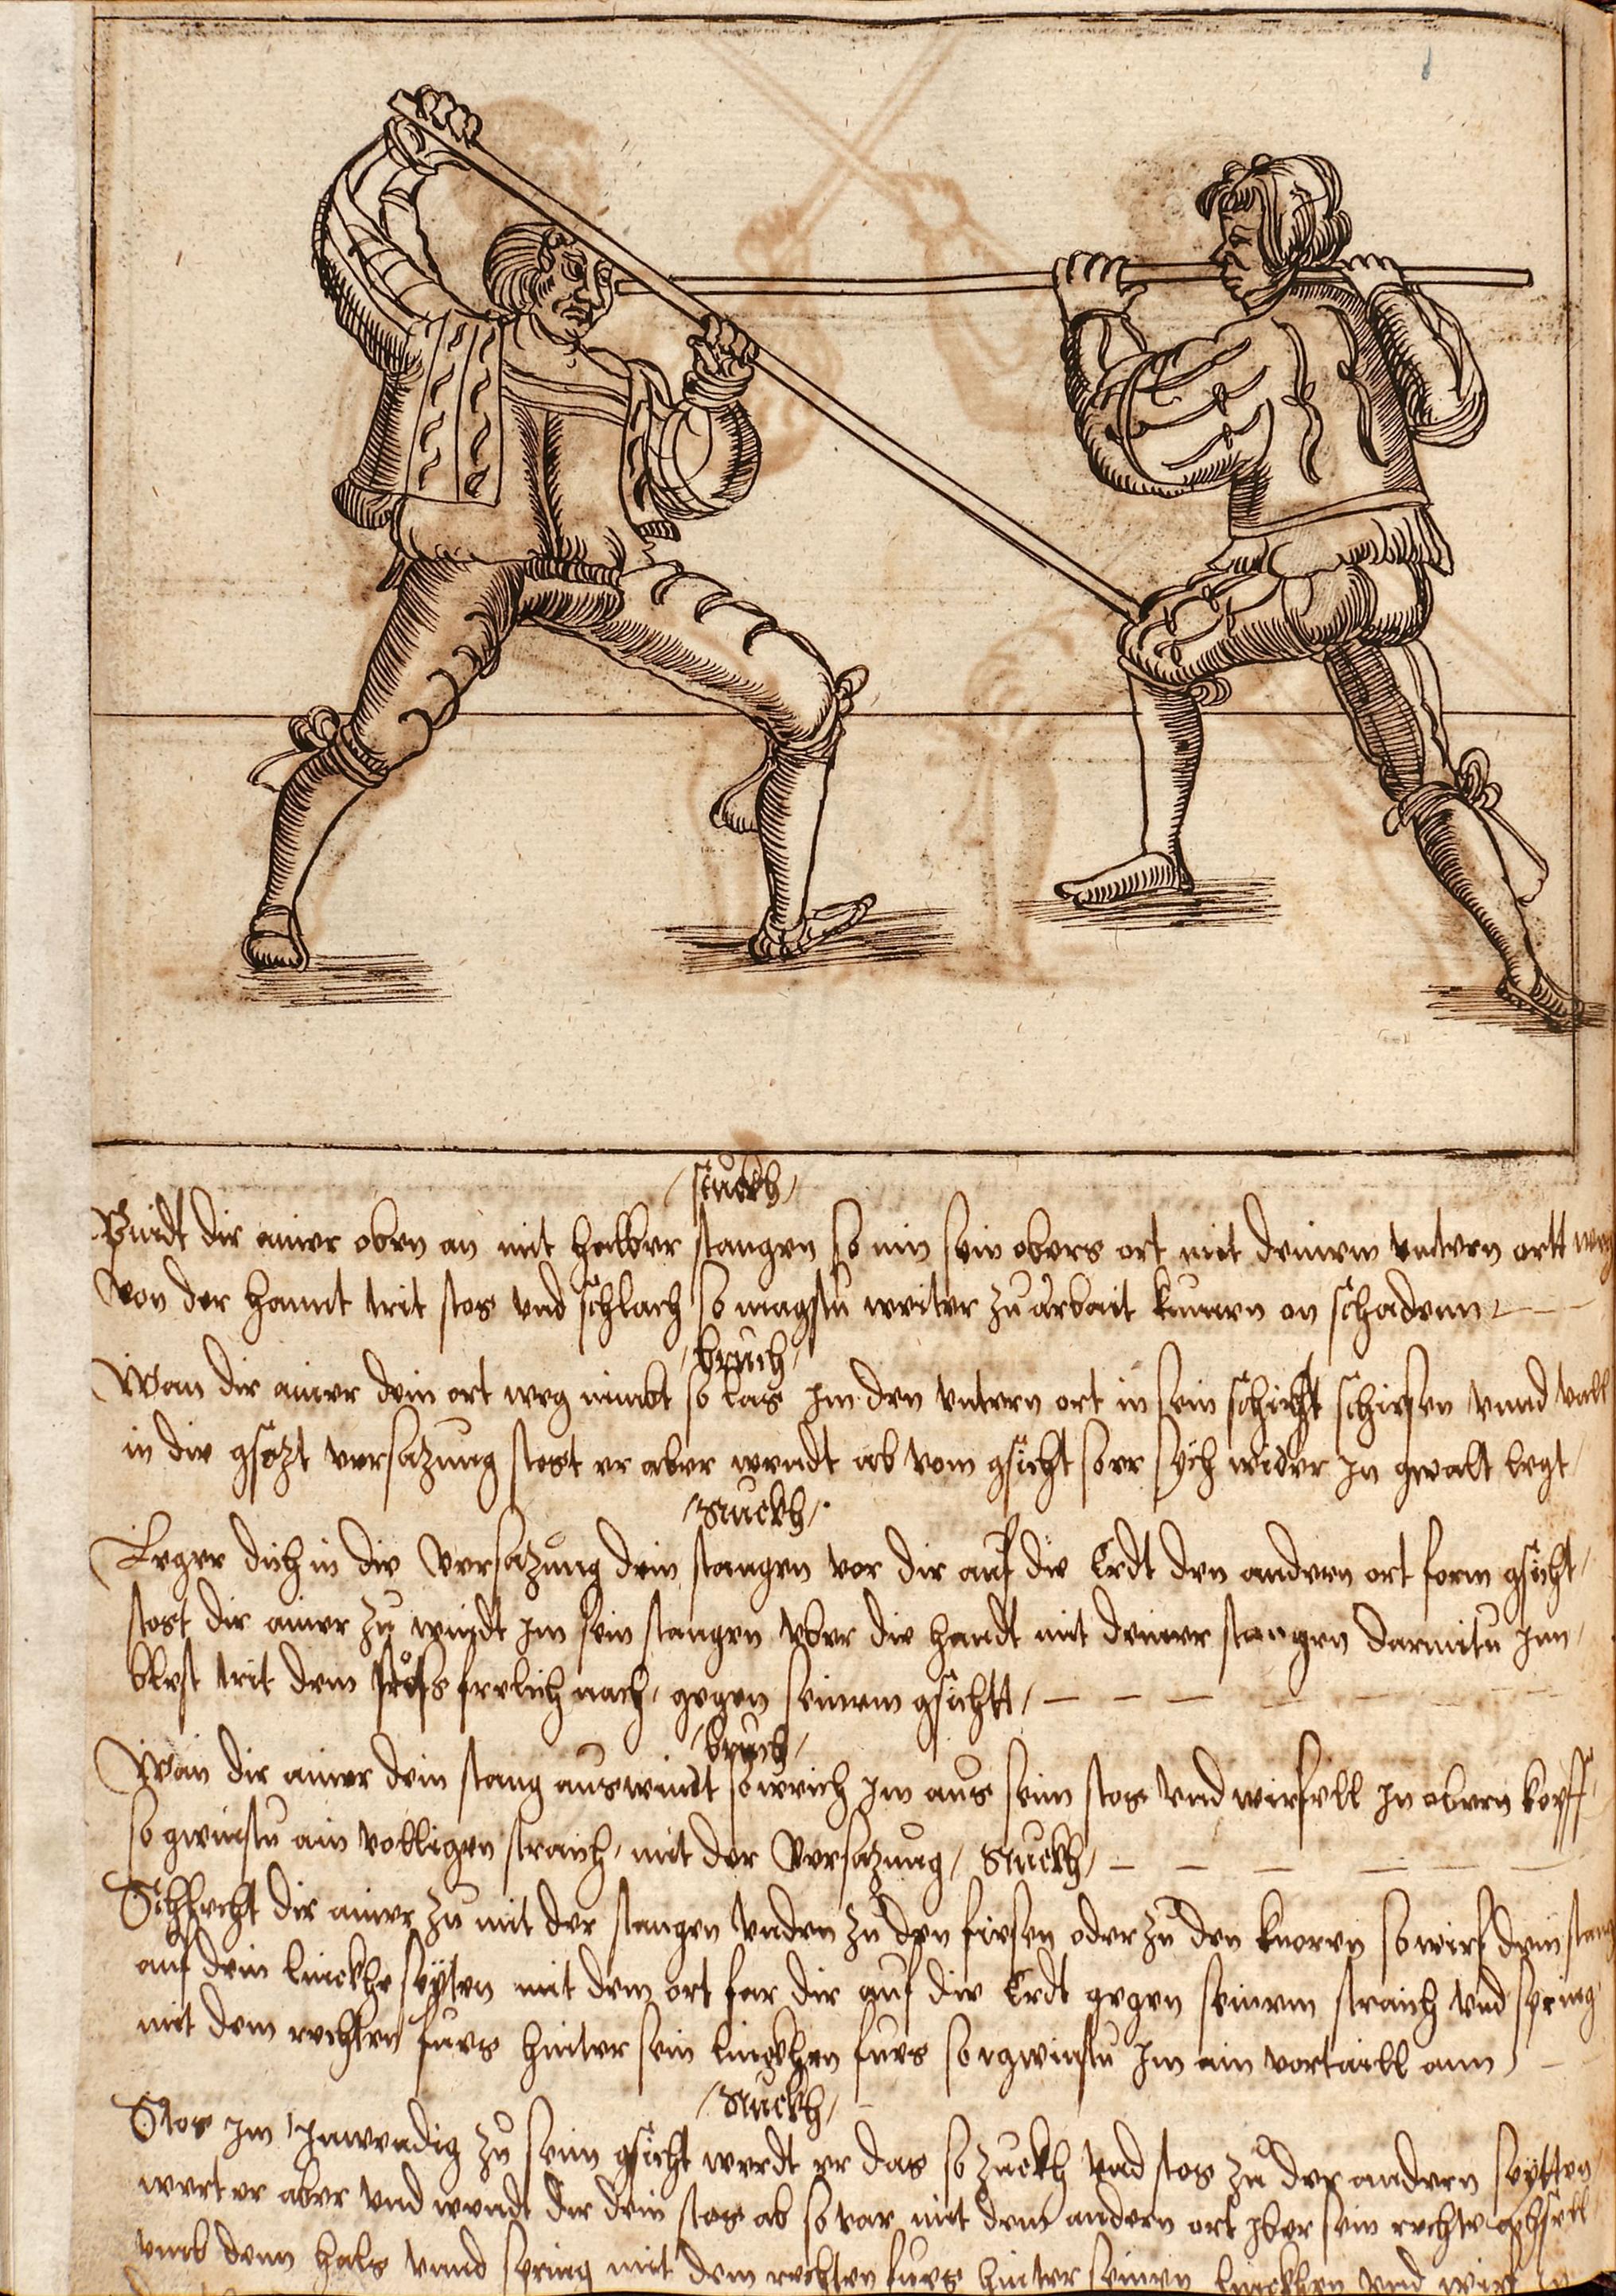 /stuckh/
Pindt dir ainer oben an mit halber stangen so nim sein obers ort mit deinem untern ortt weg
von der hannt trit stos und schlach so magstu weiter zu arbait kumen on schadenn
/bruch/
Wan dir ainer dein ort weg nimbt so las im den untern ort in sein schiessen unnd vall
in die gsezt versazung stost er aber wendt ab vom gsicht so er sich wider in gwalt legt
/Stuckh/
Leger dich in die versazung dein stangen vor dir auf die Erdt den andern ort form gsicht
stost dir ainer zu windt im sein stangen uber die handt mit deiner stangen darmitu im
blest trit dem frelich nach gegen seinem gsichtt
/bruch/
Wan dir ainer dein stang auswindt so weich im aus seim stos und wirf in obern
so gwinstu ain volligen straich mit der versazung / Stuckh /
Schlecht dir ainer zu mit der stangen unden zu den fiesen oder zu den knoren so wirf dein stang
auf dein linckhe seyten mit dem ort for dir auf die Erdt gegen seinem straich und spring
mit dem rechten fues hinter sein linckhen fues so gwinstu im ain vortaill ann
/Stuckh/
Stos im inwendig zu seim gsicht werdt er das so zuckh und stos zu der andern seytten
wert er aber und wendt dir dein stos ab so var mit dem andern ort yber sein rechte
umb denn hals unnd spring mit dem rechten fues hinter seinen linckhen und wirf